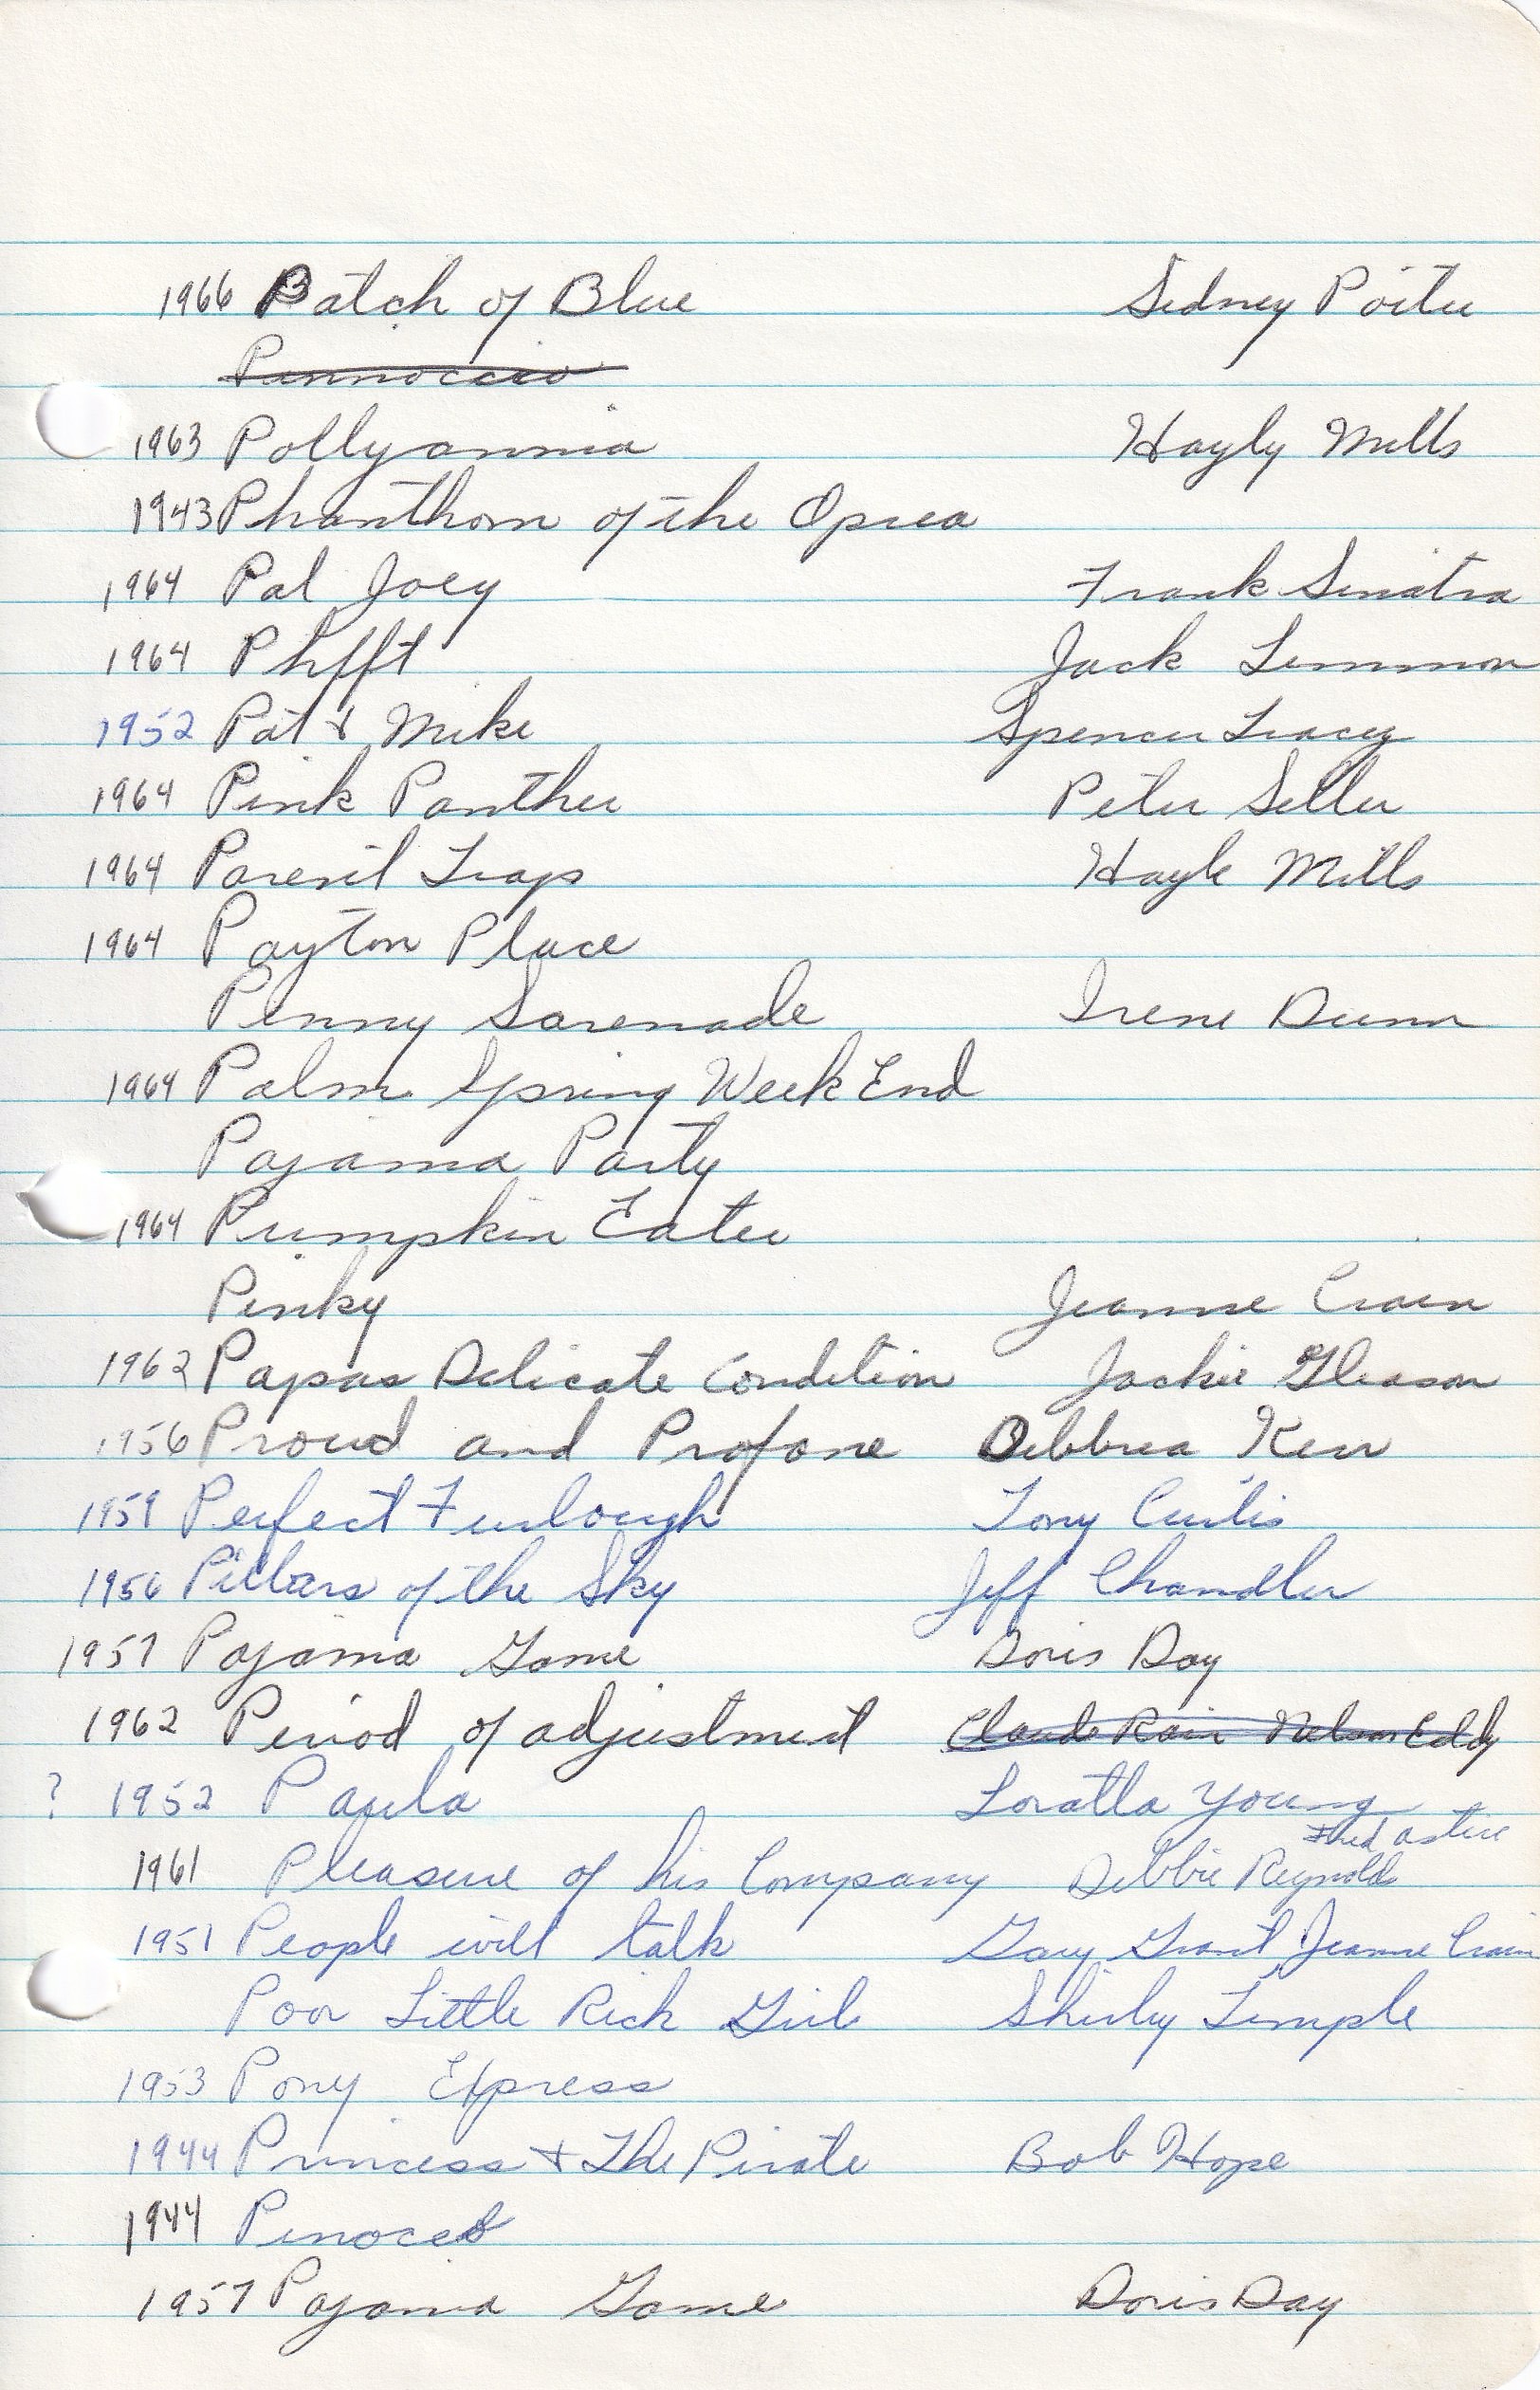 1966 Patch of Blue Sidney Poitier
Pannoccio
1963 Pollyannia Hayly Mills
1943 Phanthom of the Oprea
1964 Pal Joey Frank Sinatra
1964 Phfft Jack Lemmon
1952 Pat & Mike Spencer Tracey
1964 Pink Panther Peter Seller
1964 Parent Trap Hayle Mills
1964 Payton Place
Penny Sarenade Irene Dunn
1964 Palm Spring Week End
Pajama Party
1964 Pumpkin Eater
Pinky Jeanne Crain
1962 Papas Delicate Condition Jackie Gleason
1956 Proud and Profane Debbrea Kerr
1959 Perfect Furlough Tony Curtis
1956 Pillars of the Sky Jeff Chandler
1957 Pajama Game Doris Day
1962 Period of adjustment Claude Rain Nelson Eddy
? 1952 Paula Loratta Young
Fred astire
1961 Pleasure of his Company Debbie Reynold
1951 People will talk Gary Grant Jeanne Crain
Poor Little Rich Girl Shirley Temple
1953 Pony Express
1944 Princess & The Pirate Bob Hope
1944 Pinoceo
1957 Pajama Game Doris Day